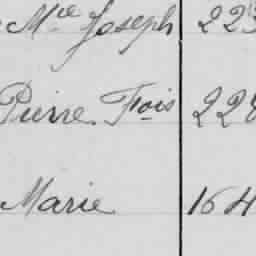 Mce Joseph 223
Pierre Frois 228
Marie 164